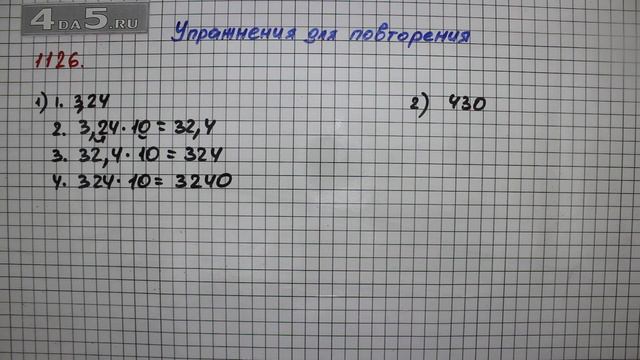 4DA5.RU
Упражнения для повторения
1126.
1) 1. 3,24
2. 3,24 · 10 = 32,4
3. 32,4 · 10 = 324
4. 324 · 10 = 3240
2) 430